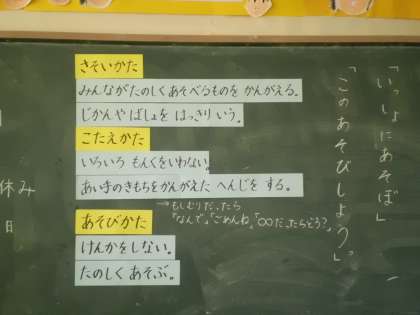 「いっしょにあそぼ」
「このあそびしよう。」
さそいかた
みんながたのしくあそべるものを かんがえる。
じかんや ばしょを はっきり いう。
こたえかた
いろいろ もんくをいわない。
あいてのきもちをかんがえた へんじを する。
→もしむりだったら
「なんで」「ごめんね」「〇〇だったらどう?」
あそびかた
けんかをしない。
たのしく あそぶ。
休み
日